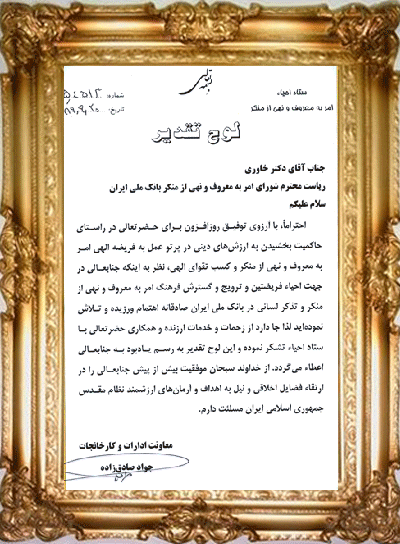 بسمه تعالی
ستاد احیاء
امر به معروف و نهی از منکر
شماره:
تاریخ:
لوح تقدیر
جناب آقای دکتر خاوری
ریاست محترم شورای امر به معروف و نهی از منکر بانک ملی ایران
سلام علیکم
احتراماً، با آرزوی توفیق روزافزون برای حضرتعالی در راستای
حاکمیت بخشیدن به ارزش‌های دینی در پرتو عمل به فریضه الهی امر
به معروف و نهی از منکر و کسب تقوای الهی، نظر به اینکه جنابعالی در
جهت احیاء فریضتین و ترویج و گسترش فرهنگ امر به معروف و نهی از
منکر و تذکر لسانی در بانک ملی ایران صادقانه اهتمام ورزیده و تلاش
نموده‌اید لذا جا دارد از زحمات و خدمات ارزنده و همکاری حضرتعالی با
ستاد احیاء تشکر نموده و این لوح تقدیر به رسم یادبود به جنابعالی
اعطاء می‌گردد. از خداوند سبحان موفقیت بیش از پیش جنابعالی را در
ارتقاء فضایل اخلاقی و نیل به اهداف و آرمان‌های ارزشمند نظام مقدس
جمهوری اسلامی ایران مسئلت دارم.
معاونت ادارات و کارخانجات
جواد صادق‌زاده